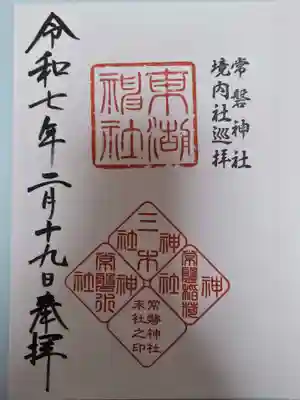 常磐神社
境内社巡拝
東湖神社
三木神社
常磐稲荷神社
常磐水神社
常磐神社
末社之印
令和七年二月十九日奉拝